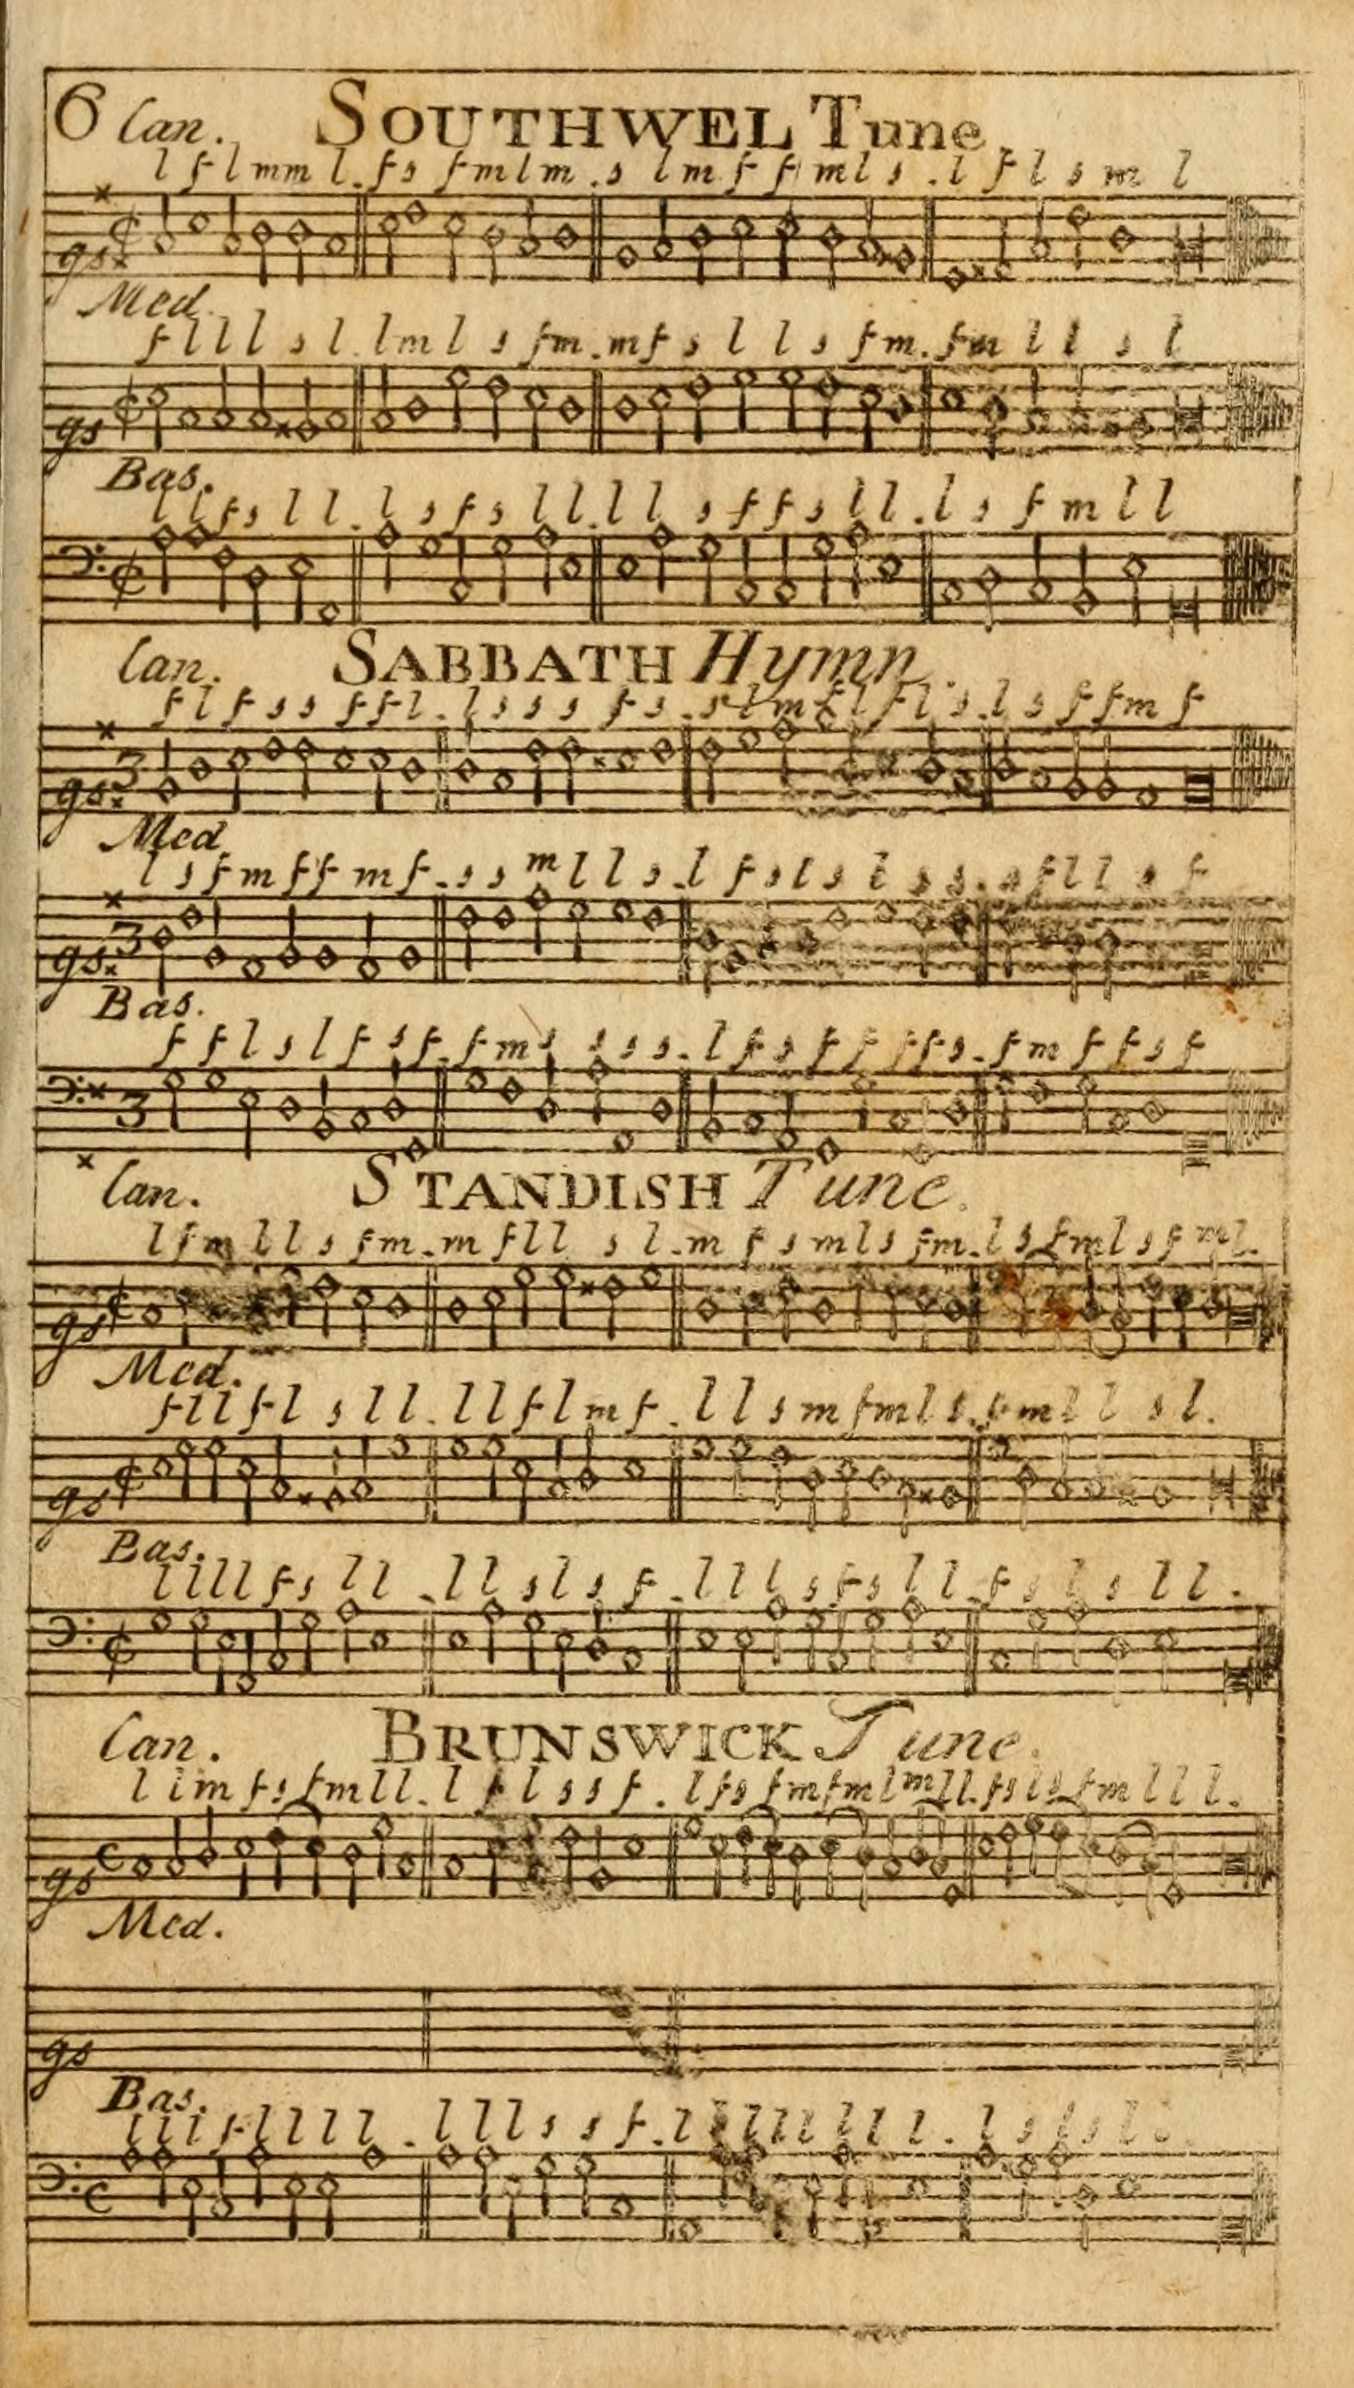 6 Can. SOUTHWEL Tune
l f l m m l. f s f m l m. s l m f f m l s. l f l s m l
gs
Med.
f l l l s l. l m l s f m. m f s l l s f m. f m l l s l
gs
Bas.
l l f s l l. l s f s l l. l l s f f s l l. l s f m l l
Can. SABBATH Hymn
f l f s s f f l. l s s s f s. s l m f l f l s. l s f f m f
3
gs
Med
l s f m f f m f. s s m l l s. l f s l s l s s. f l l s f
3
gs
Bas.
f f l s l f s f. f m s s s s. l f s f f f f s. f m f f s f
3
Can. STANDISH Tune.
l f m l l s f m. m f l l s l. m f s m l s f m. l s f m l s f m l.
gs
Med.
f l l f l s l l. l l f l m f. l l s m f m l s. f m l l s l.
gs
Bas.
l l l l f s l l. l l s l s f. l l l s f s l l. f s l s l l.
Can. BRUNSWICK Tune.
l l m f s f m l l. l f l s s f. l f s f m f m l m l l. f s l s f m l l l.
gs
Med.
gs
Bas.
l l l f l l l l. l l l s s f. l l l l l l l l. l s l s l